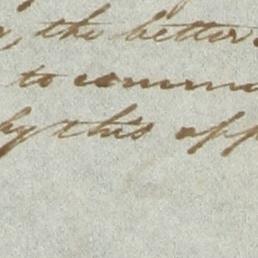 , the better
to commu
by this opp